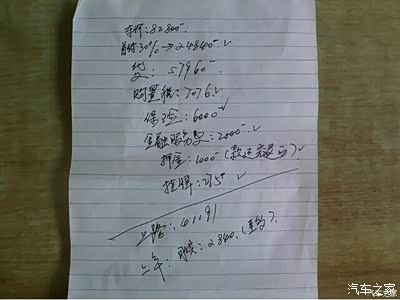 车价:82800-
首付30%→24840-√
贷:57960-
购置税:7076√
保险:6000√
金融服务费:2000-√
押金:1000-(款还完退的)√
挂牌:275-√
上路:41191
月供:2840.
汽车之家